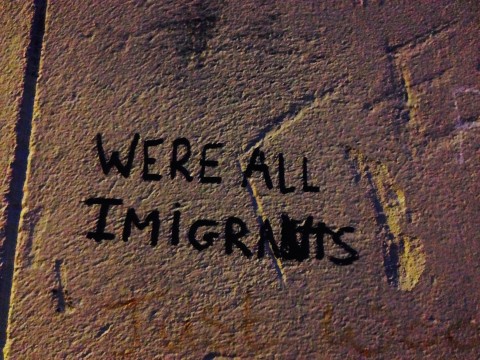 WERE ALL
IMIGRANTS